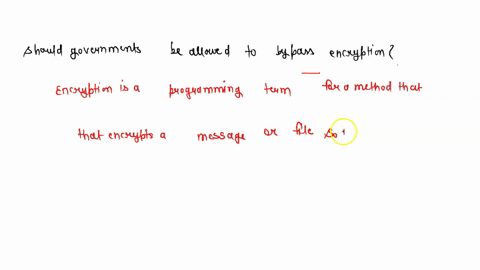 Should governments be allowed to bypass encryption?
Encryption is a programming term for a method that
that encrypts a message or file so